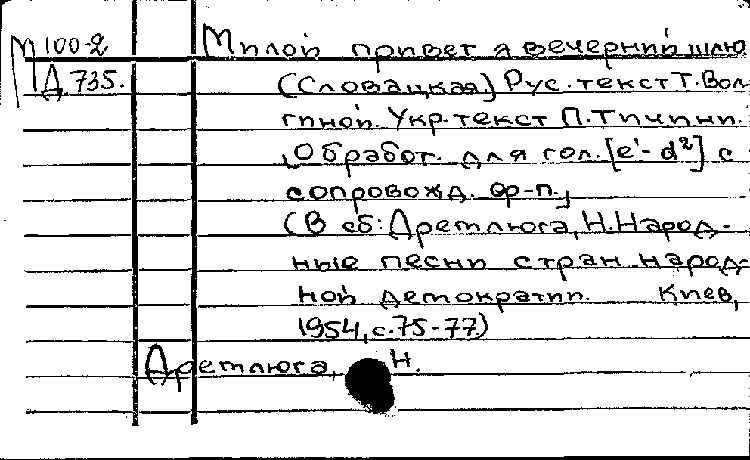 М 100-2 Милой привет я вечерний шлю
Д 735. (Словацкая.) Рус. текст Т. Вол-
гиной. Укр. текст П. Тичини.
Обработ. для гол. [e¹- d²] с
сопровожд. ф-п.
(В сб: Дремлюга, Н. Народ-
ные песни стран народ-
ной демократии. Киев,
1954, с. 75-77)
Дремлюга, Н.